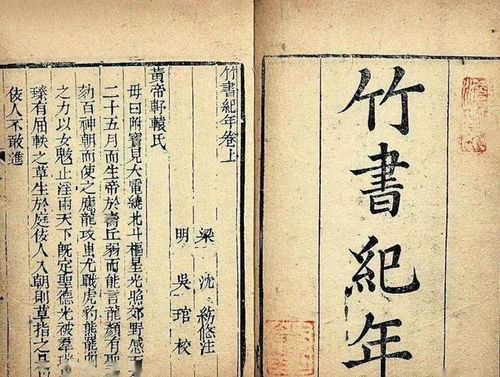 竹書紀年
竹書紀年卷上
梁 沈約修注
明 吳琯校
黃帝軒轅氏
母曰附寶見大電繞北斗樞星光照郊野感
二十五月而生帝於壽丘弱而能言龍顏有聖
劾百神朝而使之應龍攻蚩尤戰虎豹熊羆
之力以女魃止淫雨天下既定聖德光被羣瑞
臻有屈軼之草生於庭佞人入朝則草指之是
佞人不敢進